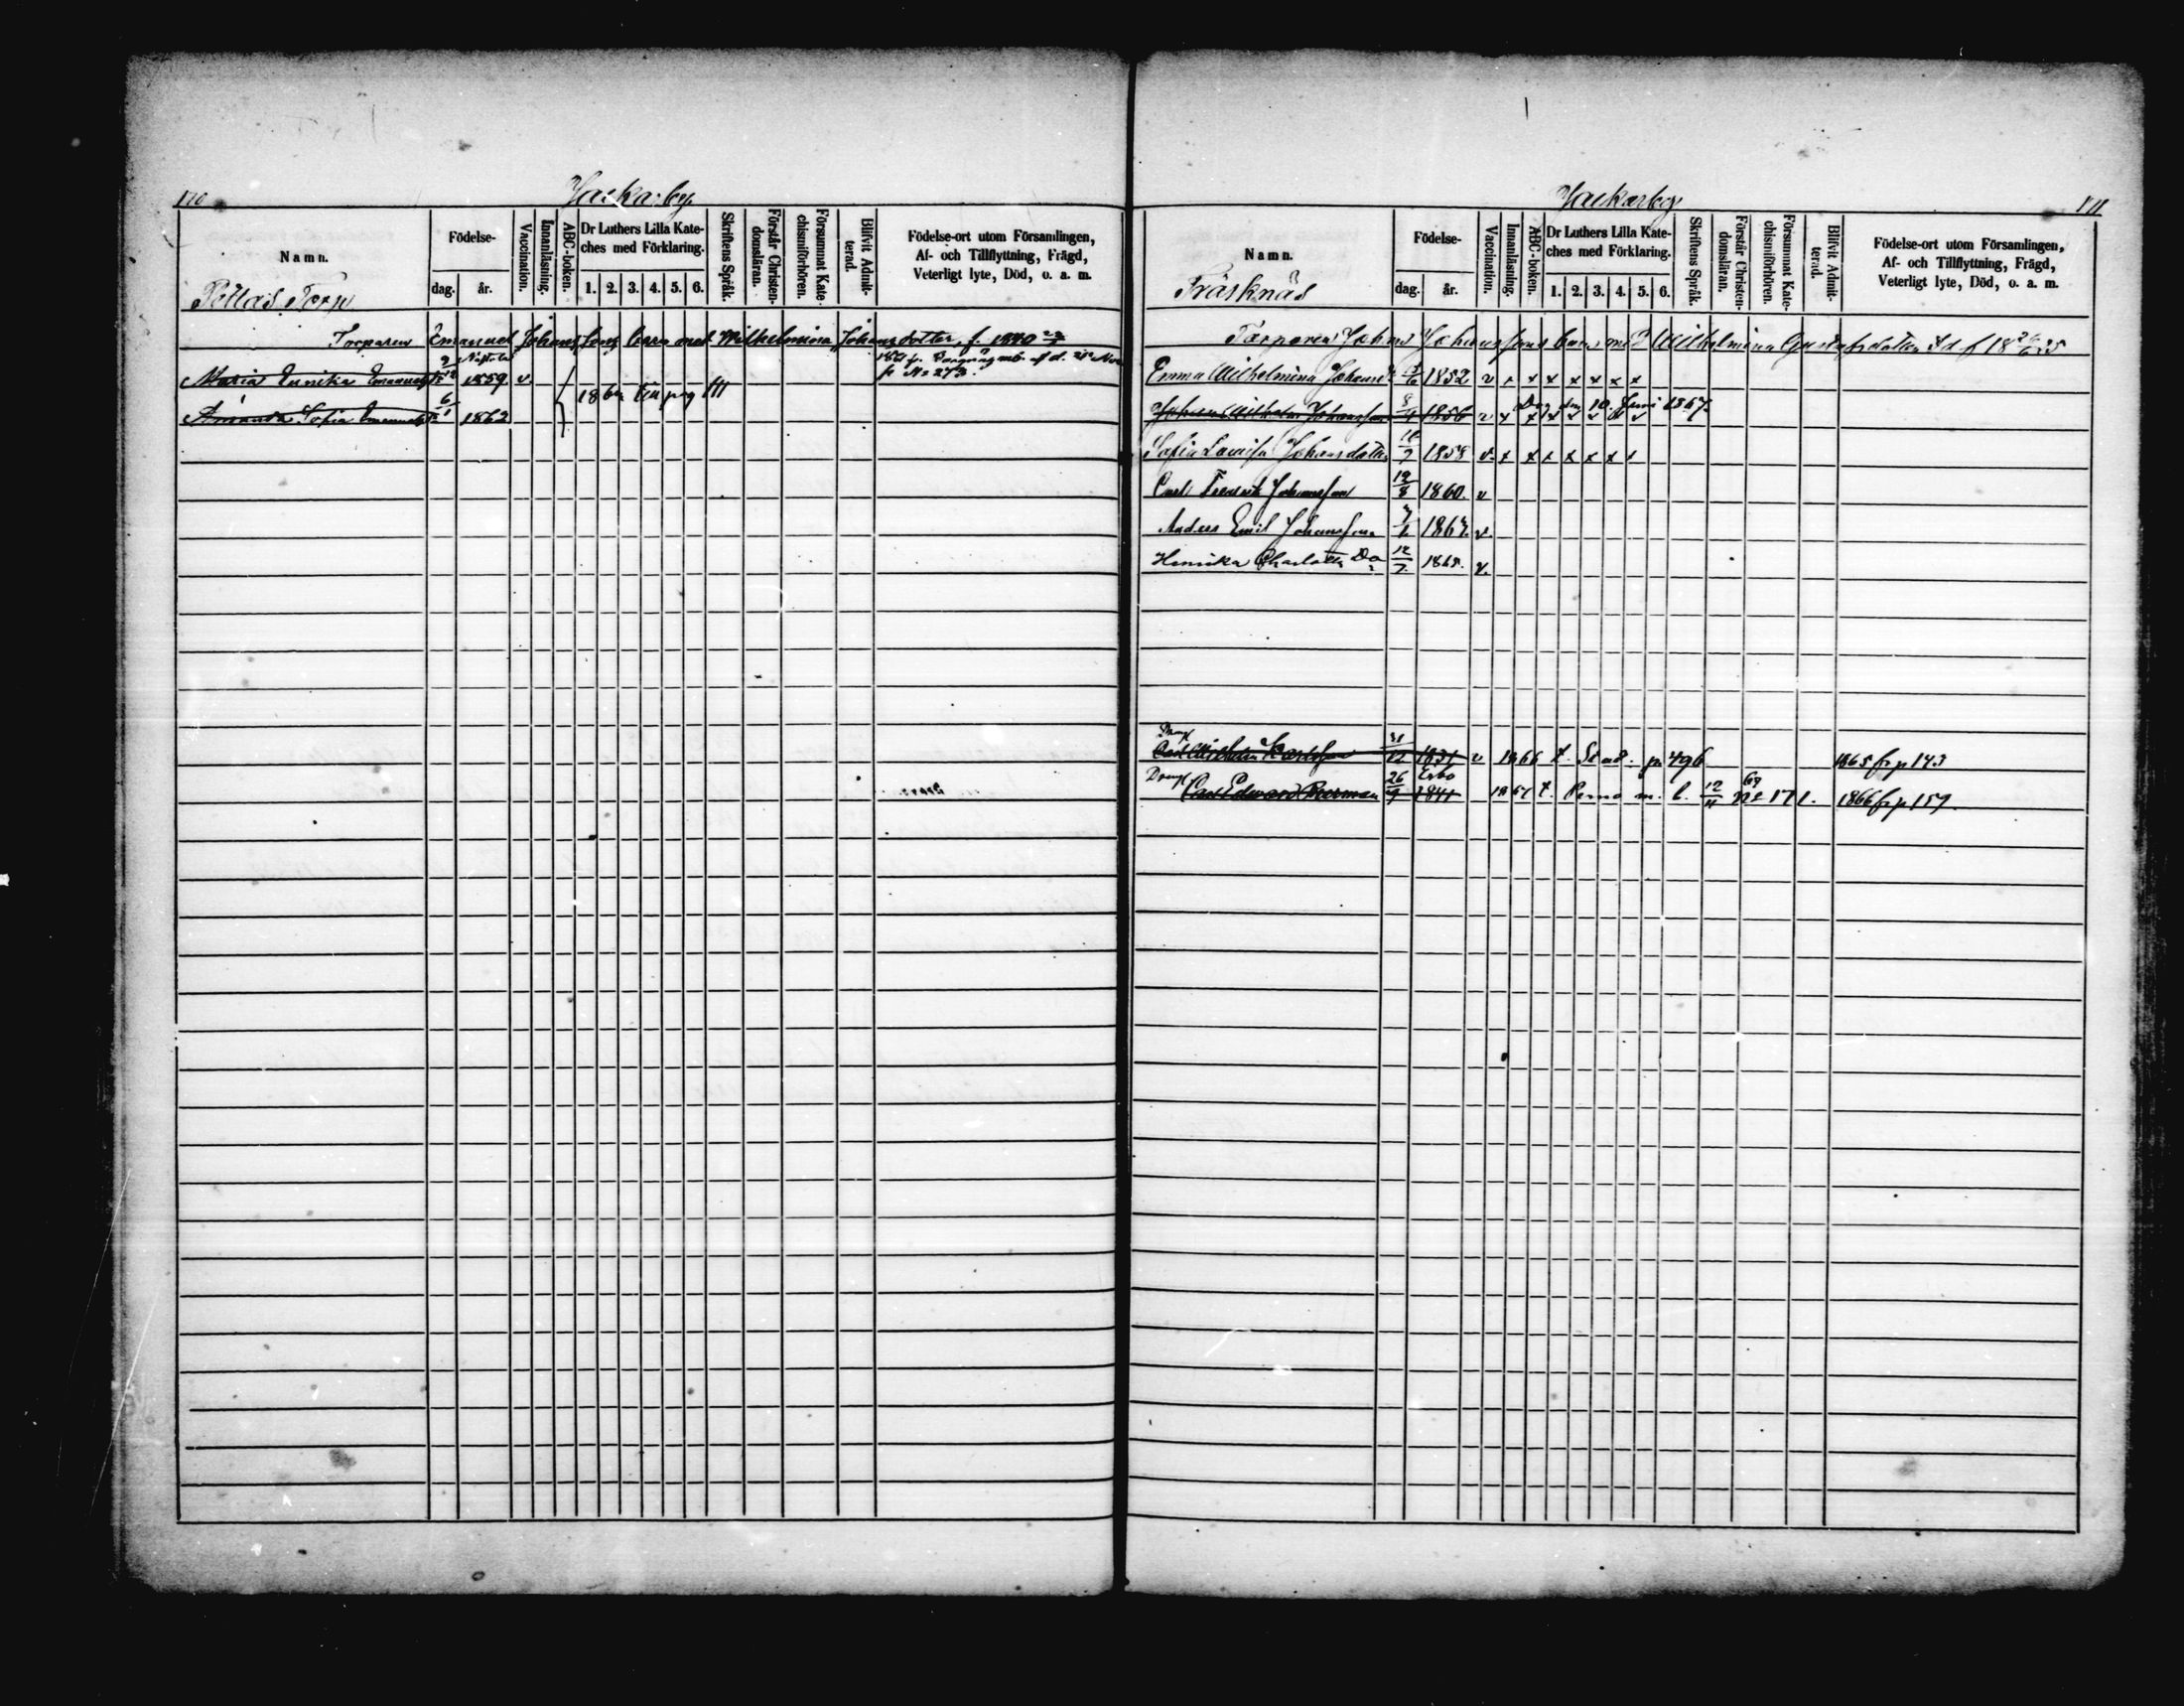 170
Jackarby
Namn.
Födelse-
dag. år.
Vaccination.
Innanläsning.
ABC-boken.
Dr Luthers Lilla Kate-
ches med Förklaring.
1. 2. 3. 4. 5. 6.
Skriftens Språk.
Förstår Christen-
domsläran.
Försummat Kate-
chismiförhören.
Blifvit Admit-
terad.
Födelse-ort utom Församlingen,
Af- och Tillflyttning, Frägd,
Veterligt lyte, Död, o. a. m.
Pellas Torp
Torparen Emanuel Johanssons barn med Wilhelmina Johansdotter, f. 1840
Maria Ennika 1859 v.
186 till pag 111
Amanda Sofia 6/1 1862
Jackarby
111
Namn.
Födelse-
dag. år.
Vaccination.
Innanläsning.
ABC-boken.
Dr Luthers Lilla Kate-
ches med Förklaring.
1. 2. 3. 4. 5. 6.
Skriftens Språk.
Förstår Christen-
domsläran.
Försummat Kate-
chismiförhören.
Blifvit Admit-
terad.
Födelse-ort utom Församlingen,
Af- och Tillflyttning, Frägd,
Veterligt lyte, Död, o. a. m.
Träsknäs
Torparen Johan Johanssons barn med Wilhelmina Gustafsdotter
Emma Wilhelmina 1852 v x x x x x x x
Johan Wilhelm Johansson 1856 v x Dog den 10 Juni 1867
Sofia Lovisa Johansdotter 1858 v x x x x x x x
Carl Fredrik Johansson 12/8 1860. v
Anders Emil Johansson 1867. v.
Henrika Charlotta Do 12/7 1865. v.
Dräng
Carl Wilhelm Karlsson 31/12 v 1866 t. Stad. p 496 1865 fr p 143
Dräng Esbo
Carl Edward 26/9 1841 1867 t. Perno m. b. 12/11 67 No 171. 1866 fr p 159.